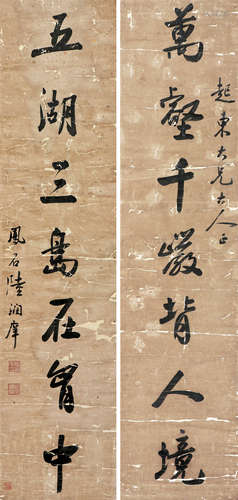 萬壑千巖背人境
起東大兄大人正
五湖三島在胷中
鳳石陸潤庠